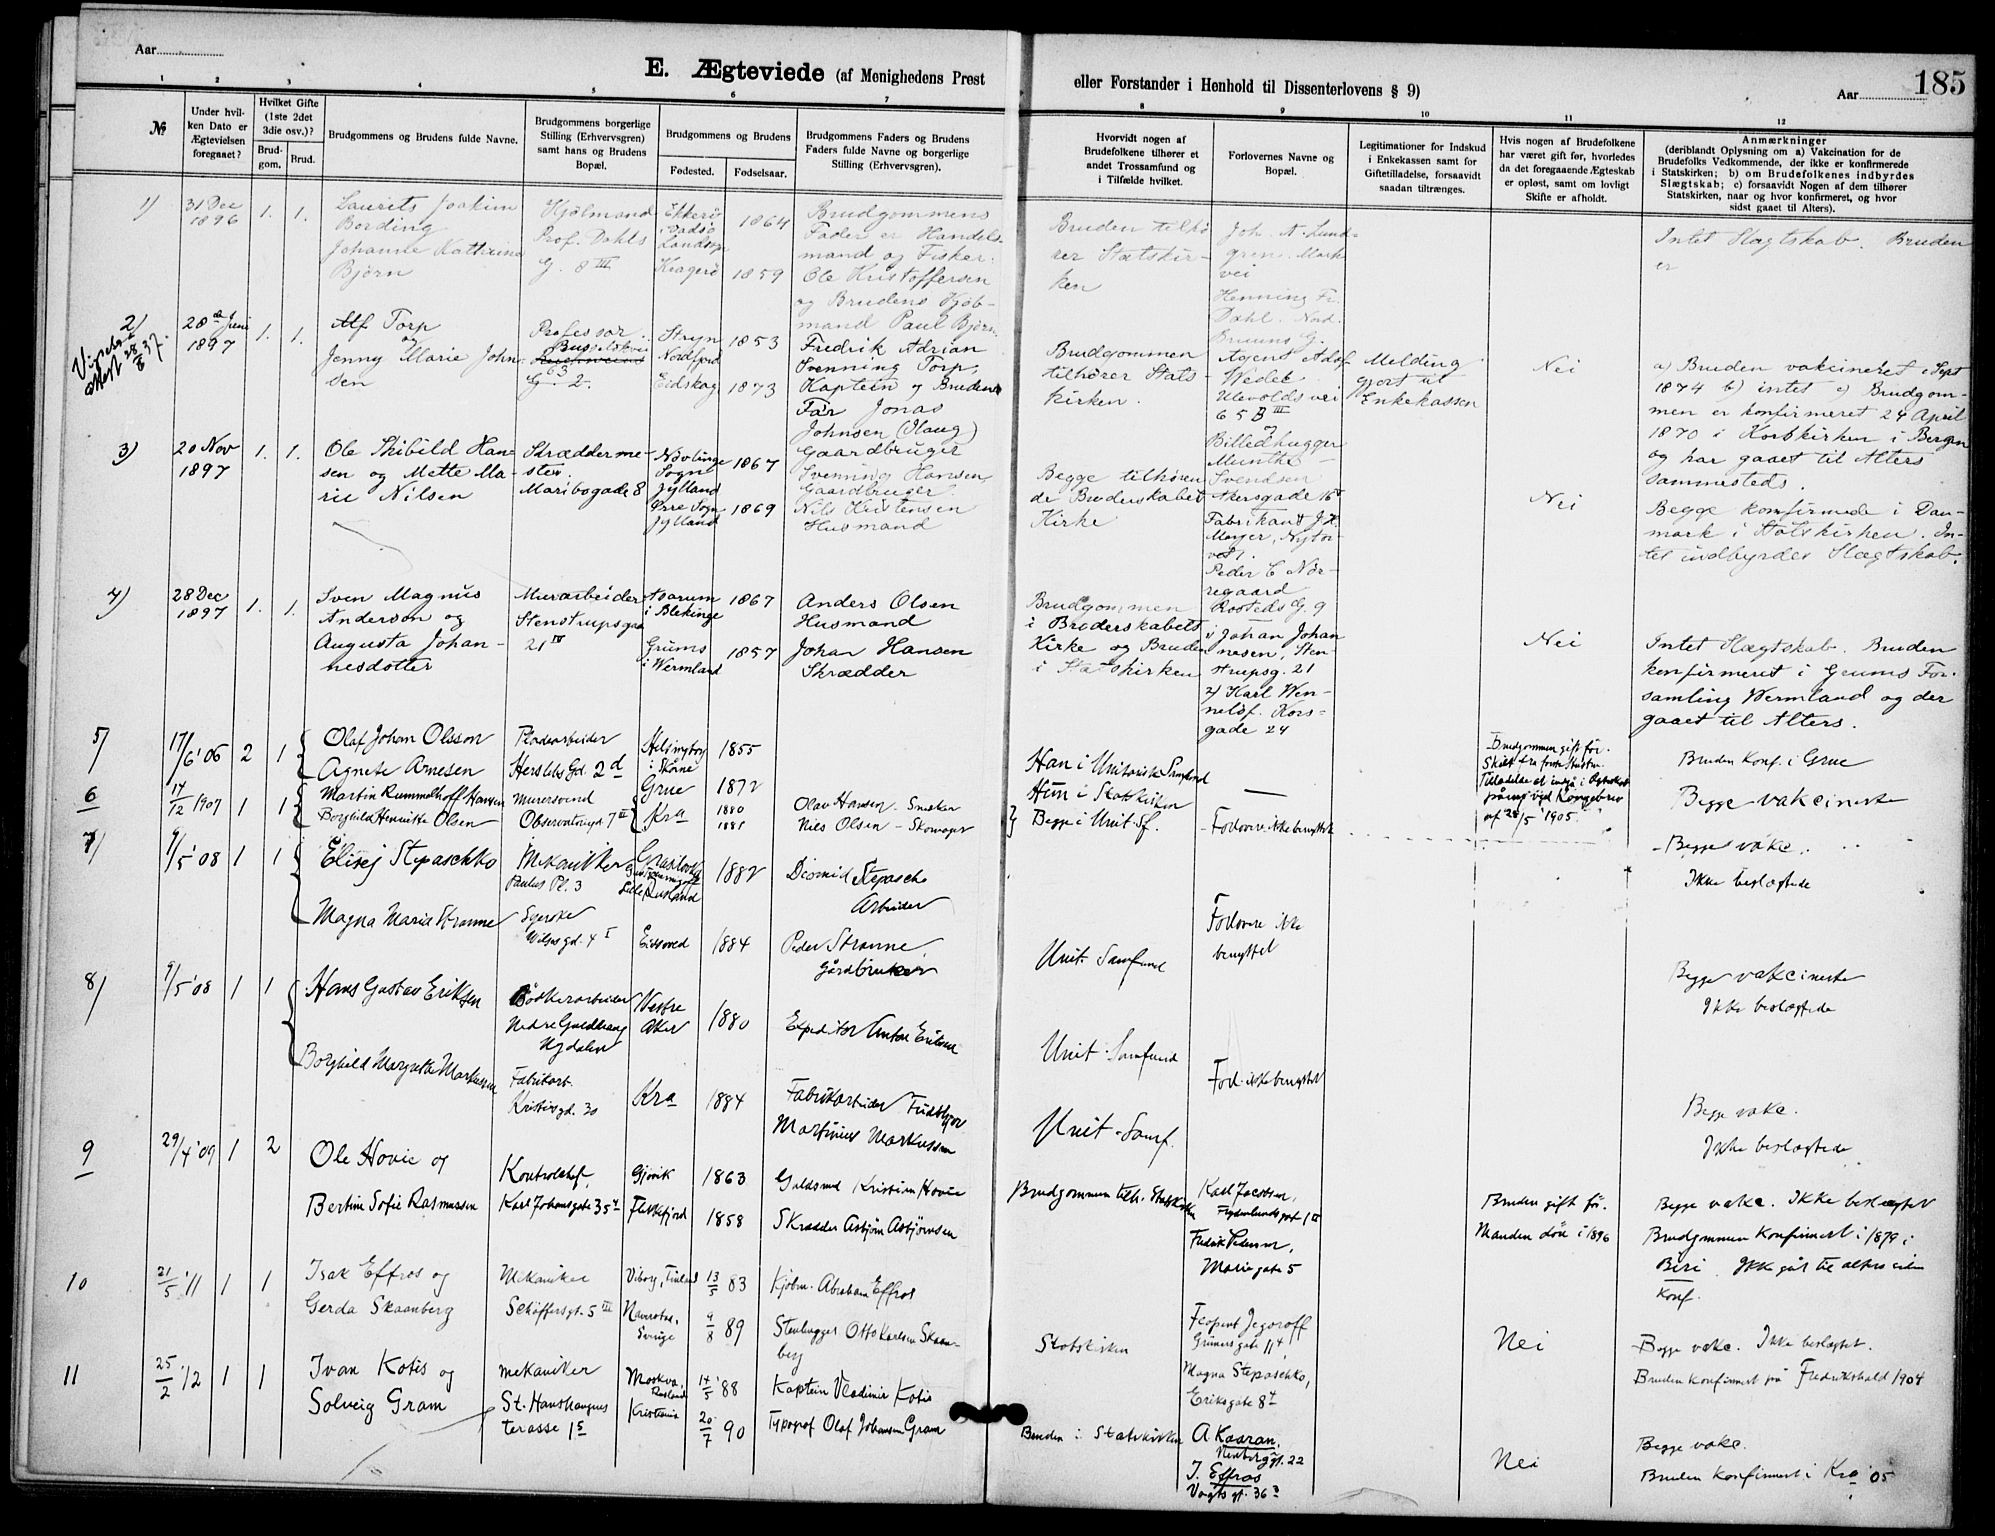 Aar
E. Ægteviede (af Menighedens Prest
eller Forstander i Henhold til Dissenterlovens § 9)
Aar
185
1 2 3 4 5 6 7 8 9 10 11 12
№
Under hvil-
ken Dato er
Ægtevielsen
foregaaet?
Hvilket Gifte
(1ste 2det
3die osv.)?
Brud-
gom.
Brud.
Brudgommens og Brudens fulde Navne.
Brudgommens borgerlige
Stilling (Erhvervsgren)
samt hans og Brudens
Bopæl.
Brudgommens og Brudens
Fødested.
Fødselsaar.
Brudgommens Faders og Brudens
Faders fulde Navne og borgerlige
Stilling (Erhvervsgren).
Hvorvidt nogen af
Brudefolkene tilhører et
andet Trossamfund og
i Tilfælde hvilket.
Forlovernes Navne og
Bopæl.
Legitimationer for Indskud
i Enkekassen samt for
Giftetilladelse, forsaavidt
saadan tiltrænges.
Hvis nogen af Brudefolkene
har været gift før, hvorledes
da det foregaaende Ægteskab
er opløst, samt om lovligt
Skifte er afholdt.
Anmærkninger
(deriblandt Oplysning om a) Vakcination for de
Brudefolks Vedkommende, der ikke er konfirmerede
i Statskirken; b) om Brudefolkenes indbyrdes
Slægtskab; c) forsaavidt Nogen af dem tilhører
Statskirken, naar og hvor konfirmeret, og hvor
sidst gaaet til Alters).
1)
31 Dec
1896
1. 1.
Laurits Joakim
Bording
Johanne Kathrine
Bjørn
Kjølmand
Prof. Dahls
G. 8 III
Kragerø
1864
1859
Brudgommens
Fader er Handels-
mand og Fisker.
Ole Kristoffersen
og Brudens Kjøb-
mand Paul Bjørn
Bruden tilhø
rer Statskir-
ken
Joh. A. Lund-
gren. Mark
vei
Henning Fr.
Dahl. Nord.
Bruuns G.
Intet Slægtskab. Bruden
er
2)
28de Juni
1897
1. 1.
Alf Torp
og
Jenny Marie John-
sen
Professor.
Stryn
Nordfjord
Eidskog
1853
1873
Fredrik Adrian
Svenning Torp,
Kaptein og Brudens
Far Jonas
Johnsen (Haug)
Gaardbruger
Brudgommen
tilhører Stats-
kirken.
Agent Adolf
Wedel
Ulevolds vei
65 B III
og
Billedhugger
Munthe
Svendsen
Akersgade 16
Melding
gjort til
Enkekassen
Nei
a) Bruden vakcineret i Sept
1874 b) intet c) Brudgom-
men er konfirmeret 24 April
1870 i Korskirken i Bergen
og har gaaet til Alters
sammesteds.
3)
20 Nov
1897
1. 1.
Ole Skibild Han-
sen og Mette Ma-
rie Nilsen
Skrædderme-
ster.
Maribogade 8
Nøvlinge
Sogn
Jylland
Ørre Sogn
Jylland
1867
1869
Svenning Hansen
Gaardbruger.
Nils Kristensen
Husmand
Begge tilhøren
de Broderskabet
Kirke
Fabrikant J. H.
Meyer, Nytor-
vet 1.
Peder C Nør-
regaard
Rosteds G. 9
Nei
Begge konfirmede i Dan-
mark i Statskirken. In-
tet indbyrdes Slægtskab.
4)
28 Dec
1897
1. 1.
Sven Magnus
Anderson og
Augusta Johan-
nesdotter
Murarbeider
Stenstrupsgaa
21 IV
Asarum
i Blekinge
Grums
i Wermland
1867
1857
Anders Olsen
Husmand
Johan Hansen
Skrædder
Brudgommen
i Broderskabets
Kirke og Bruden
i Statskirken
1) Johan Johan
nesen, Sten-
strupsg. 21
2) Karl Wen-
nelöf. Kors-
gade 24
Nei
Intet Slægtskab. Bruden
konfirmeret i Grums For-
samling Wermland og der
gaaet til Alters.
5)
17/6 '06
2 1
Olaf Johan Olsson
Agnete Arnesen
Pladearbeider
Herslebs Gd. 2 d
Helsingborg
i Skåne
Grue
1855
1872
Han i Unitariske Samfund
Hun i Statskirken
Brudgommen gift før.
af 28/5 1905.
Bruden Konf. i Grue
6
17/2 1907
1 1
Martin Rummelhoff Hansen
Borghild Henriette Olsen
Murersvend
Observatoriegd. 7 II
Kra
1880
1881
Olav Hansen. Snekker
Niels Olsen - Skomager
Begge i Unit. Sf.
Forlovere ikke benyttet
Begge vakcinerte
7)
9/5 '08
1 1
Elisej Stepaschko
Magna Maria Strønne
Mekaniker
Paulus Pl. 3
Syerske
Wilsesgd. 4 I
Eidsvold
1882
1884
Diomid Stepaschko
Arbeider
Peder Strønne
Gårdbruker
Unit. Samfund
Forlovere ikke
benyttet
Begge vakc.
Ikke beslægtede
8)
9/5 '08
1 1
Hans Gustav Eriksen
Borghild Margrethe Markussen
Bødkerarbeider
Nydalen
Fabrikarb.
Kristiesgd. 30
Vestre
Aker
Kra
1880
1884
Expeditør Anton Eriksen
Fabrikarbeider Fredrik
Martinius Markussen
Unit. Samfund
Forl. ikke benyttet
Begge vakcinerte
Ikke beslægtede
9
29/4 '09
1 2
Ole Hovie og
Bertine Sofie Rasmussen
Kontrolchef
Karl Johansgate 35 4
Gjøvik
Flekkefjord
1863
1858
Guldsmed Kristian Hovie
Skrædder Asbjørn Asbjørnsen
Unit. Samf.
Brudgommen tilh. Statskirken
Karl Jacobsen,
Fredrik Pedersen,
Mariegate 5
Bruden gift før.
Manden død i 1896
Begge vakc.
Ikke beslægtede
Begge vakc. Ikke beslægtet
Brudgommen Konfirmert i 1879 i
Biri. Ikke gåt til alters siden
Konf.
10
21/5 '11
1 1
Isak Effros og
Gerda Skaanberg
Mekaniker
Schøffersgt. 5 III
Viborg, Finland
Sverige
13/5 83
9/8 89
Kjøbm. Abraham Effros
Stenhugger Otto Karlsen Skaan-
berg
Statskirken
Jegoroff
Grünersgate 11 4
Magna Stepaschko,
Eriksgate 8 4
Nei
Begge vakc. Ikke beslægtet.
Bruden konfirmert på Fredrikshald 1904
11
25/2 '12
1 1
Ivan Kotis og
Solveig Gram
mekaniker
St. Hanshaugens
terasse 1 5
Moskva,
Rusland
Kristiania
14/5 '88
20/7 90
Kaptein Vladimir Kotis
Typograf Olaf Johansen Gram
Bruden i Statskirken
A. Kaaran,
I. Effros
Vogtsgt. 36 3
Nei
Begge vakc.
Bruden konfirmert i Kra '05